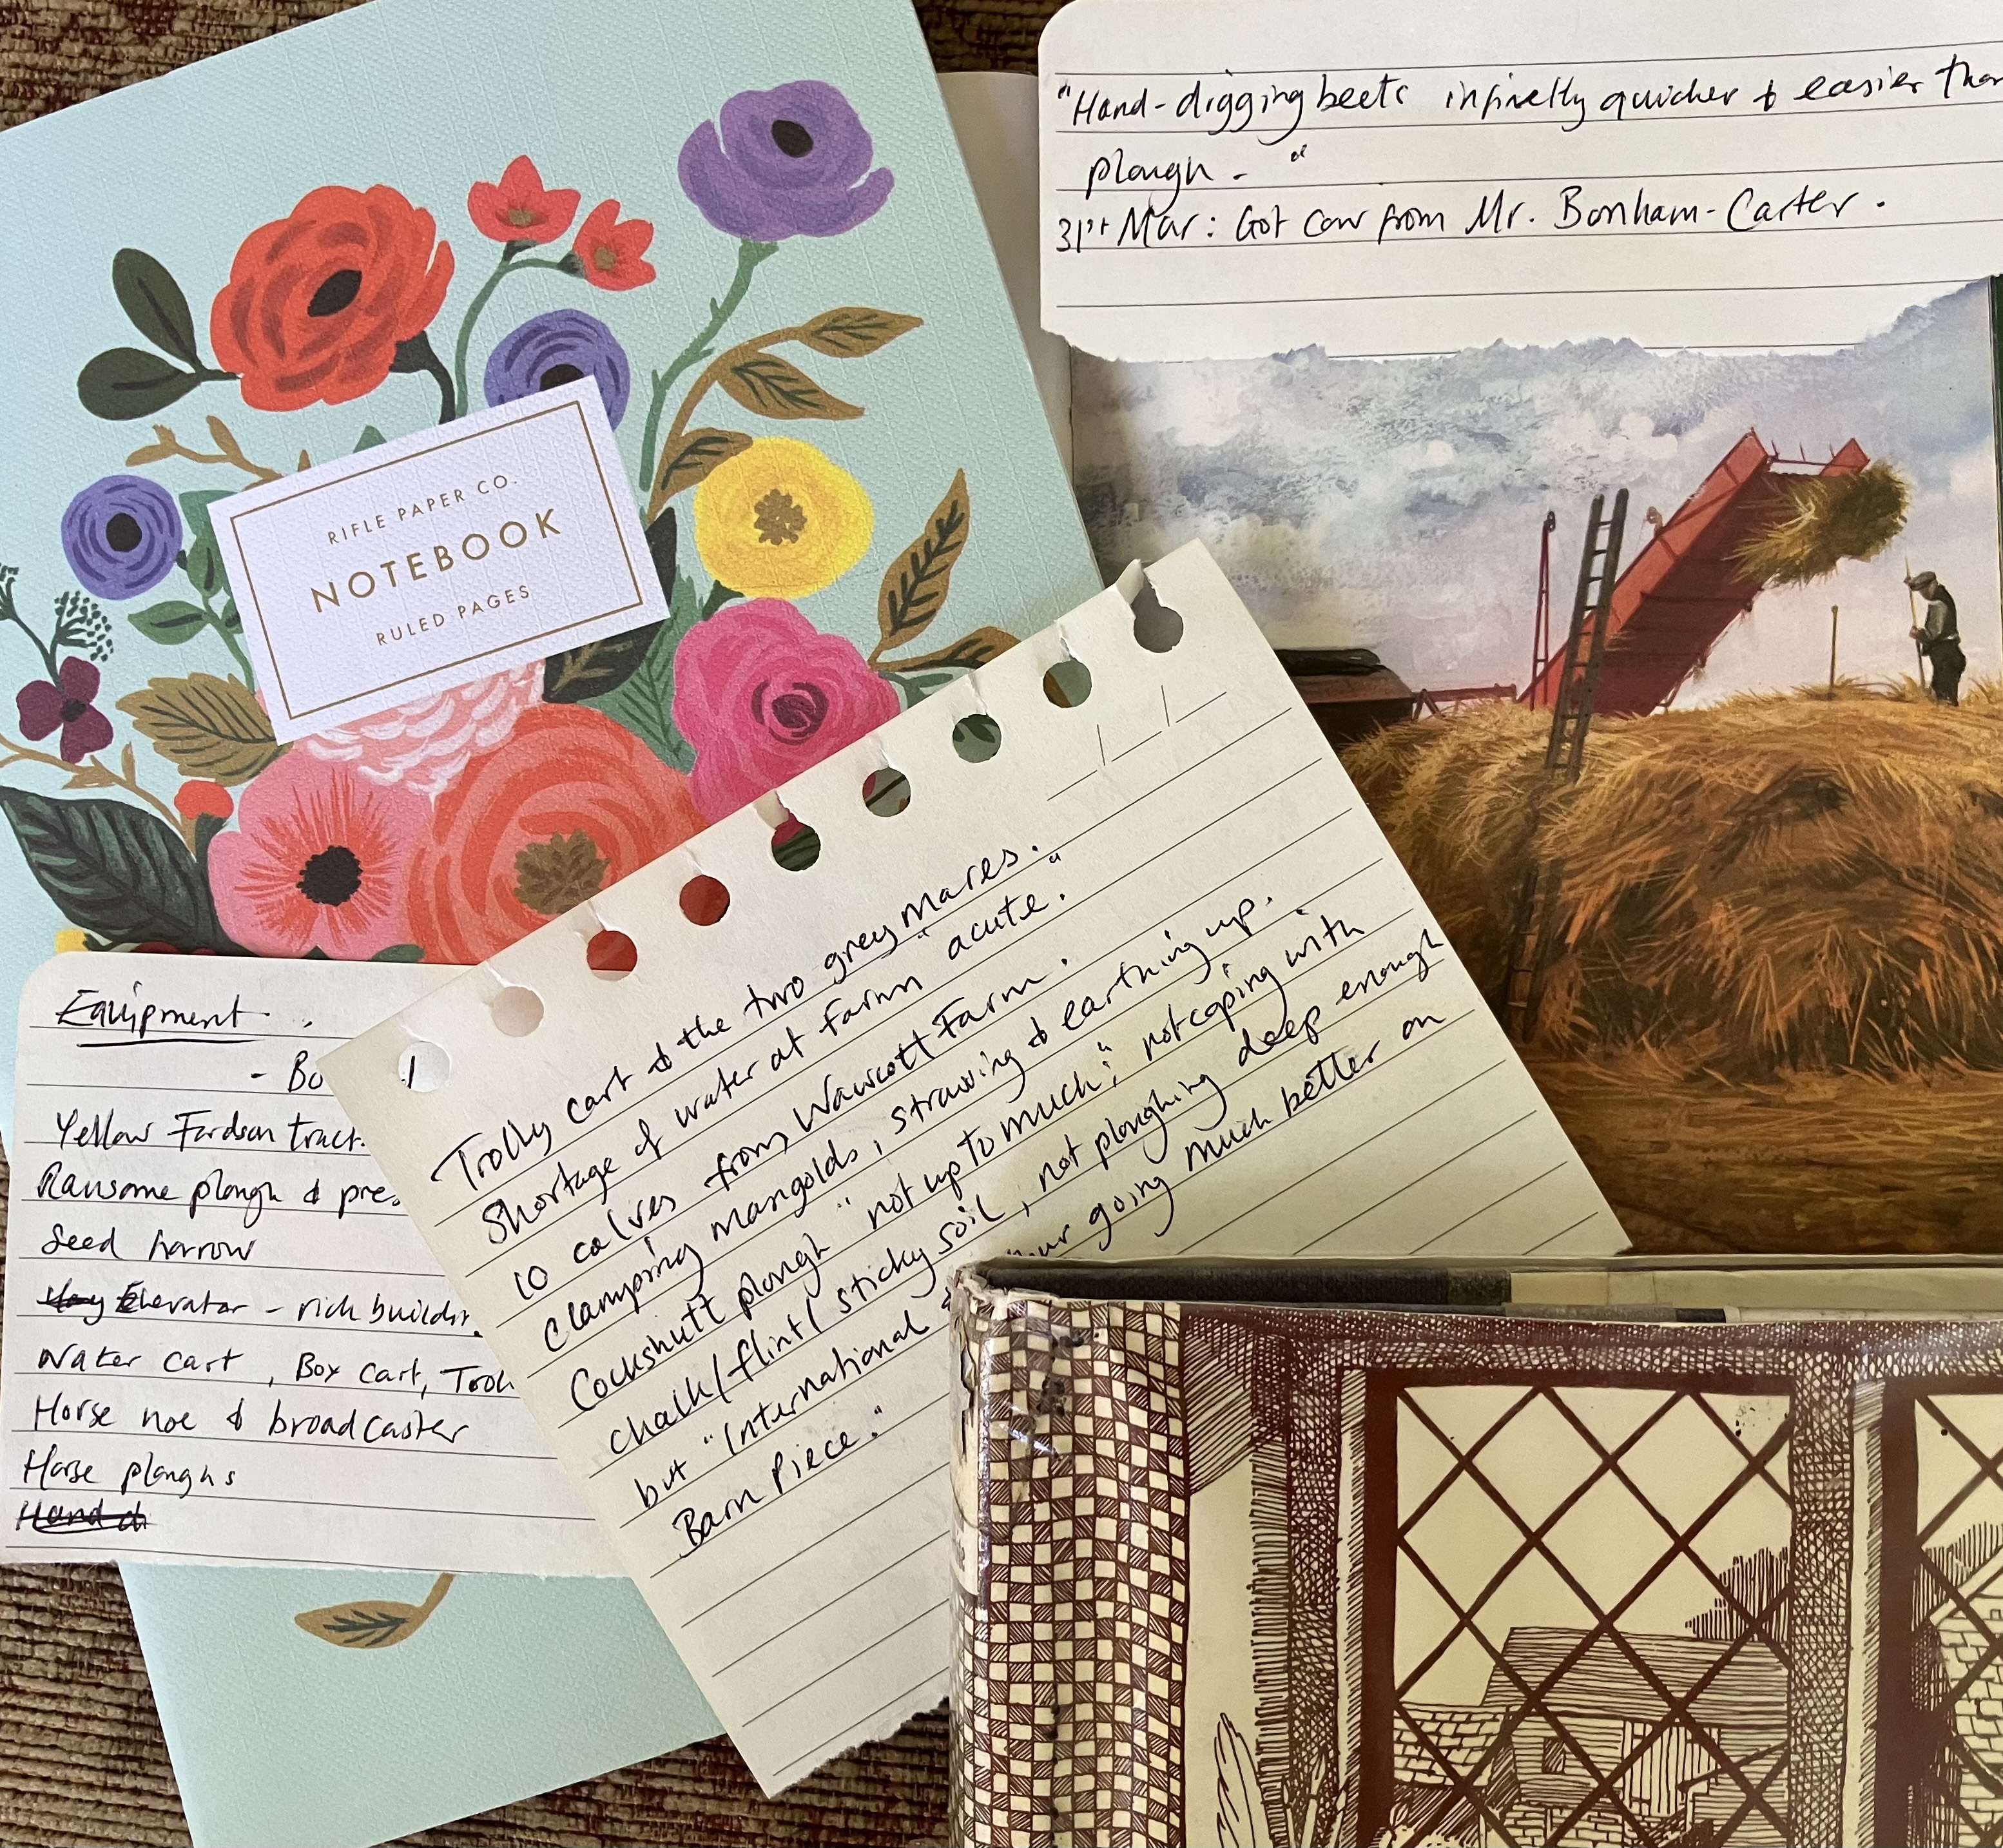 "Hand-digging beets infinitely quicker & easier than
plough."
31st Mar: Got cow from Mr. Bonham-Carter.
RIFLE PAPER CO.
NOTEBOOK
RULED PAGES
Trolly cart & the two grey mares.
Shortage of water at farm "acute."
10 calves from Wawcott Farm.
Clamping mangolds, strawing & earthing up.
Cockshutt plough "not up to much"; not coping with
chalk/flint/sticky soil, not ploughing deep enough
but "International & going much better on
Barn Piece."
Equipment.
- Bo
Yellow Fordson tract
Ransome plough & pres
Seed harrow
Hay Elevator - rick buildin
Water cart, Box cart, Troll
Horse hoe & broadcaster
Horse ploughs
Hand d